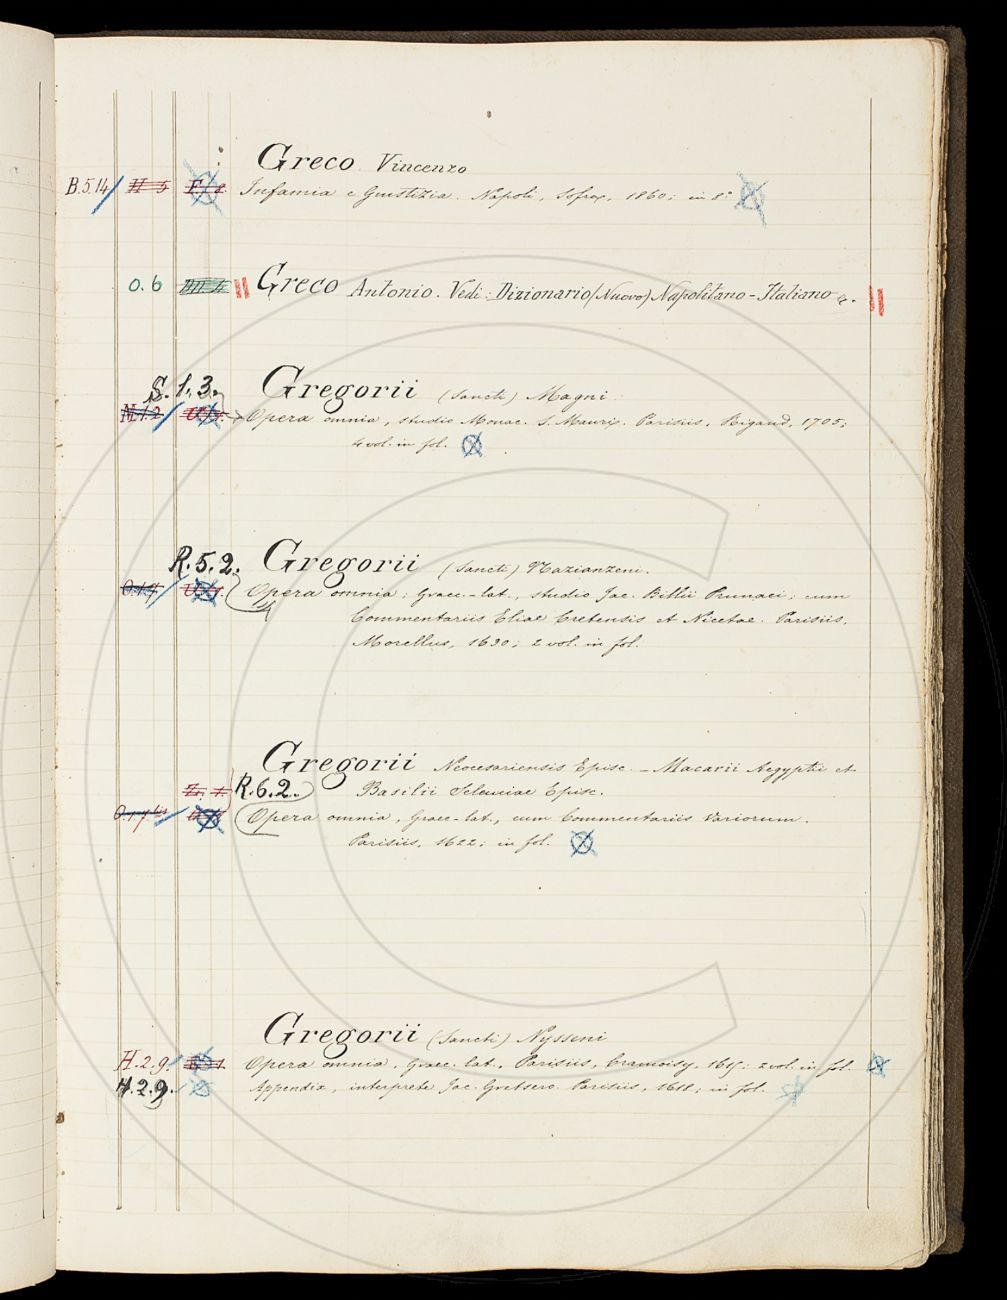 Greco Vincenzo
B.5.14 H 5 F. 2. Infamia e Giustizia. Napoli, 1860; in 8°
O. 6 Greco Antonio. Vedi: Dizionario (Nuovo) Napolitano-Italiano
S. 1. 3. Gregorii (Sancti) Magni
N.1.2 Opera omnia, studio Monac. S. Mauri. Parisiis, Rigaud, 1705;
4 vol. in fol.
R. 5. 2. Gregorii (Sancti) Nazianzeni.
Opera omnia; Graec.-lat., studio Jac. Billii Prunaei; cum
Commentariis Eliae Cretensis et Nicetae. Parisiis,
Morellus, 1630; 2 vol. in fol.
Gregorii Neocesariensis Episc. - Macarii Aegyptii et
R. 6. 2. Basilii Seleuciae Episc.
Opera omnia, Graec-lat., cum Commentariis Variorum.
Parisiis, 1622; in fol.
Gregorii (Sancti) Nysseni
H. 2. 9. Opera omnia, Graec. lat., Parisiis, Cramoisy, 1615; 2 vol. in fol.
H. 2. 9. Appendix, interprete Jac. Gretsero. Parisiis, 1618; in fol.